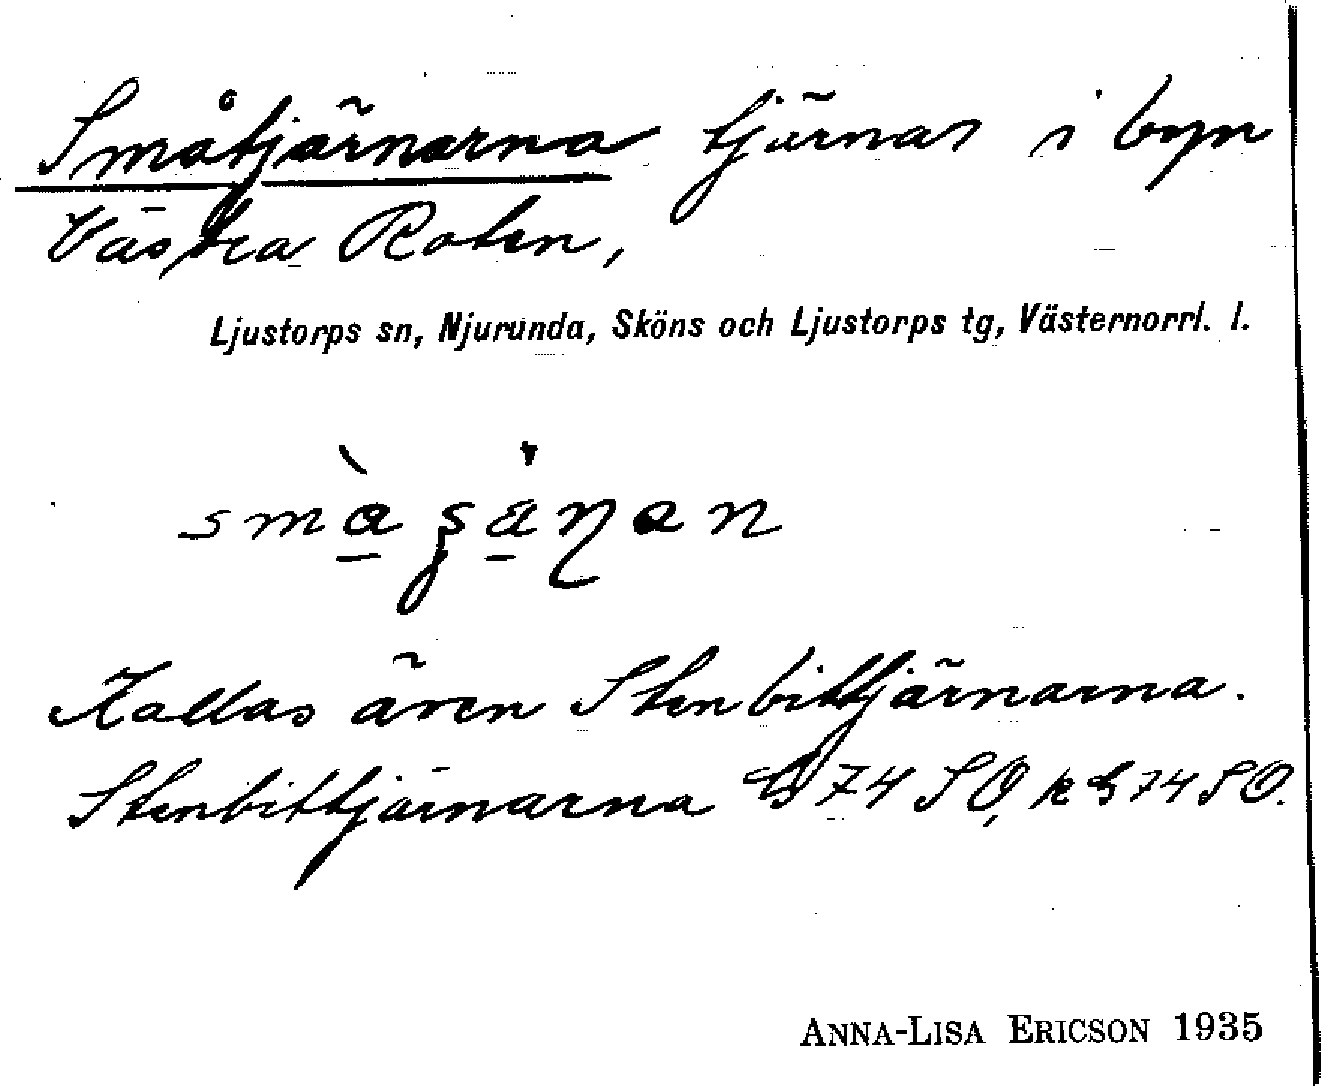 Småtjärnarna tjärnar i byn
Västra Roten,
Ljustorps sn, Njurunda, Sköns och Ljustorps tg, Västernorrl. l.
Kallas även Stenbittjärnarna.
Stenbittjärnarna G 74 SO, k G 74 SO.
ANNA-LISA ERICSON 1935